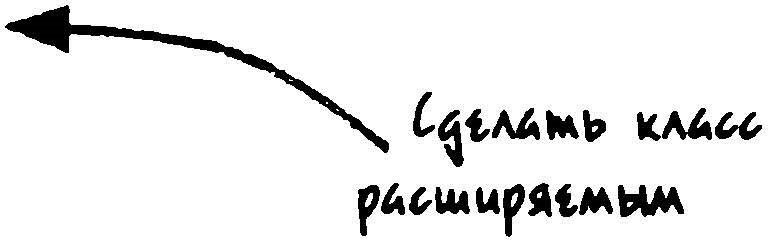 Сделать класс
расширяемым